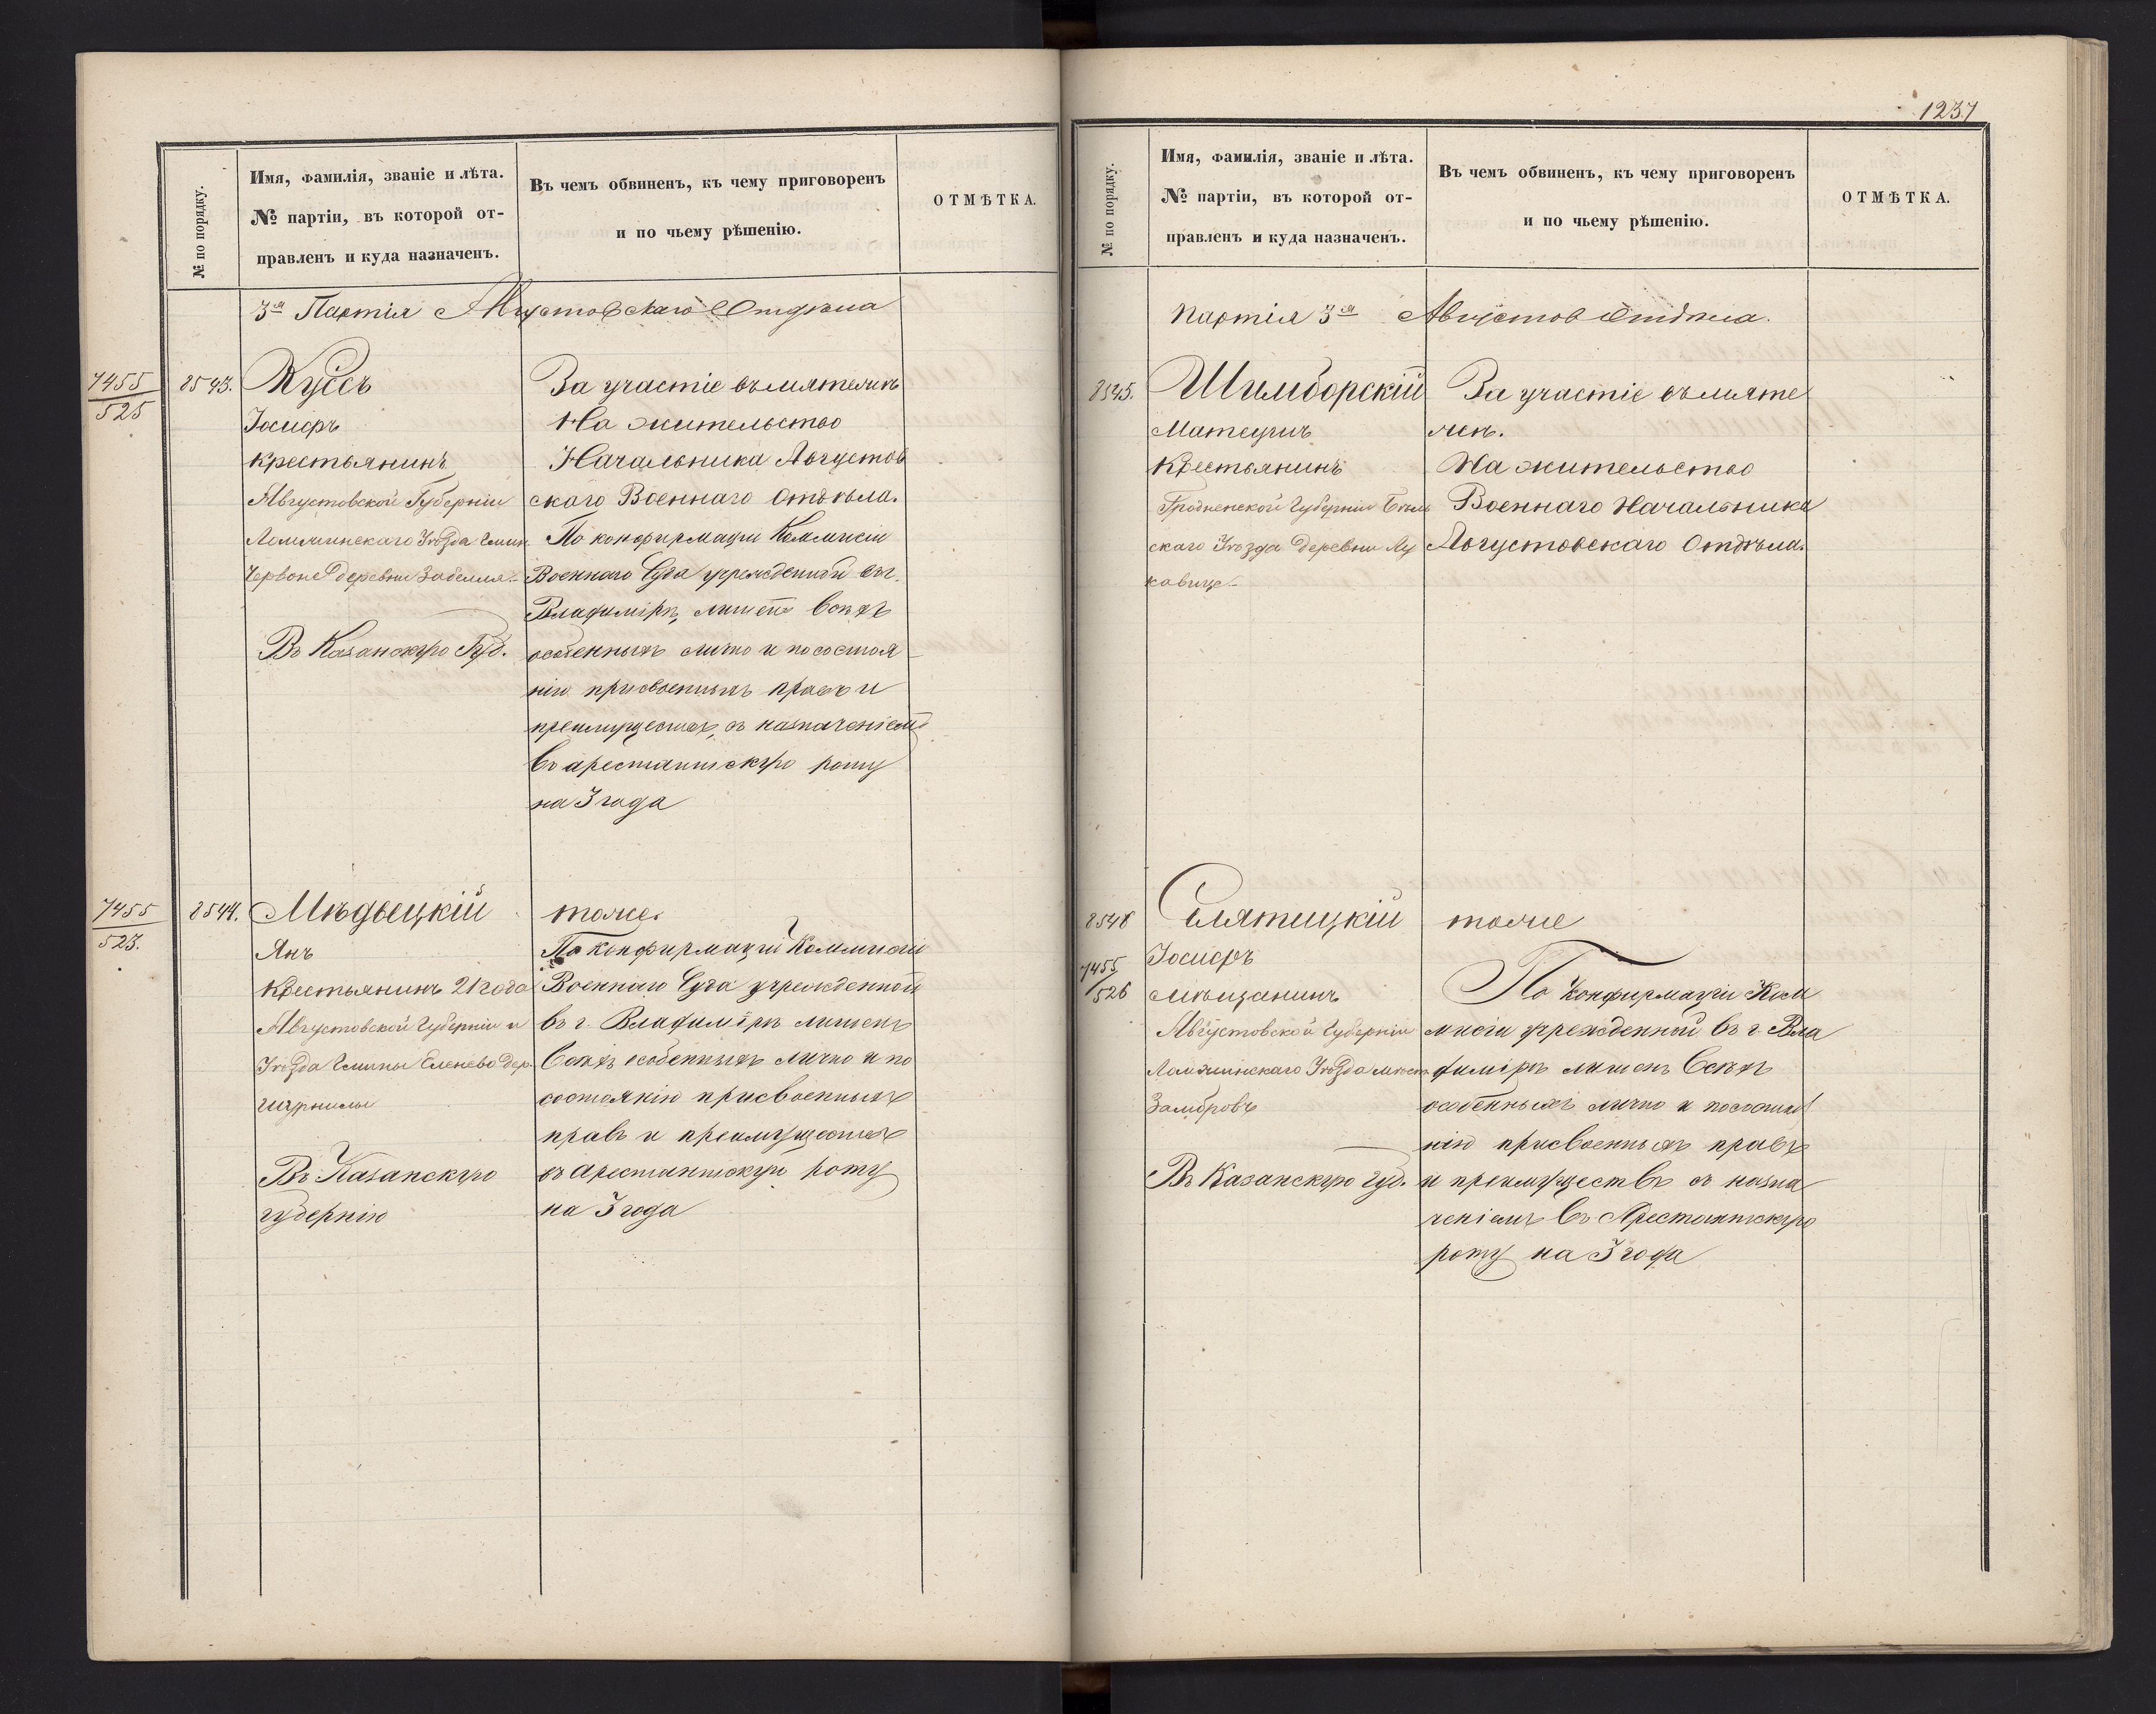 № по порядку.
Имя, Фамилія, званіе и лѣта.
№ партіи, въ которой от-
правленъ и куда назначенъ.
Въ чемъ обвиненъ, къ чему приговоренъ
и по чьему рѣшенію.
ОТМѢТКА.
3я Партія Августовскаго Отдѣла
7455
525
8543.
Куссъ
Іосифъ
крестьянинъ
Августовской Губерніи
Ломжинскаго Уѣзда Гмин.
Червоне деревни
Въ Казанскую Губ.
За участіе въ мятежѣ
На жительство
Начальника Августов
скаго Военнаго Отдѣла.
По конфирмаціи Коммисіи
Военнаго Суда учрежденной въ г.
Владимірѣ, лишенъ всѣхъ
особенныхъ лично и по состоя
нію присвоенныхъ правъ и
преимуществъ, съ назначеніемъ
въ арестантскую роту
на 3 года
7455
523.
8544.
Мѣдвецкій
Янъ
Крестьянинъ 21 года
Августовской Губерніи и
Уѣзда Гмины Еленево дер.
Въ Казанскую
губернію
тоже.
По конфирмаціи Коммисіи
Военнаго Суда учрежденной
въ г. Владимірѣ лишенъ
всѣхъ особенныхъ лично и по
состоянію присвоенныхъ
правъ и преимуществъ
въ арестантскую роту
на 3 года
1237
№ по порядку.
Имя, Фамилія, званіе и лѣта.
№ партіи, въ которой от-
правленъ и куда назначенъ.
Въ чемъ обвиненъ, къ чему приговоренъ
и по чьему рѣшенію.
ОТМѢТКА.
Партія 3я Августов Отдѣла.
8545.
Шимборскій
Матеушъ
Крестьянинъ
Гродненской Губерніи Бѣль
скаго Уѣзда деревни Лу
кавице
За участіе въ мяте
жѣ.
На жительство
Военнаго Начальника
Августовскаго Отдѣла.
8548
7455
526
Сѣлятицкій
Іосифъ
мѣщанинъ
Августовской Губерніи
Ломжинскаго Уѣзда мѣст.
Замбровъ
Въ Казанскую губ.
тоже
По конфирмаціи Ком
мисіи учрежденной въ г. Вла
димірѣ лишенъ всѣхъ
особенныхъ лично и по состоя
нію присвоенныхъ правъ
и преимуществъ съ назна
ченіемъ въ Арестантскую
роту на 3 года